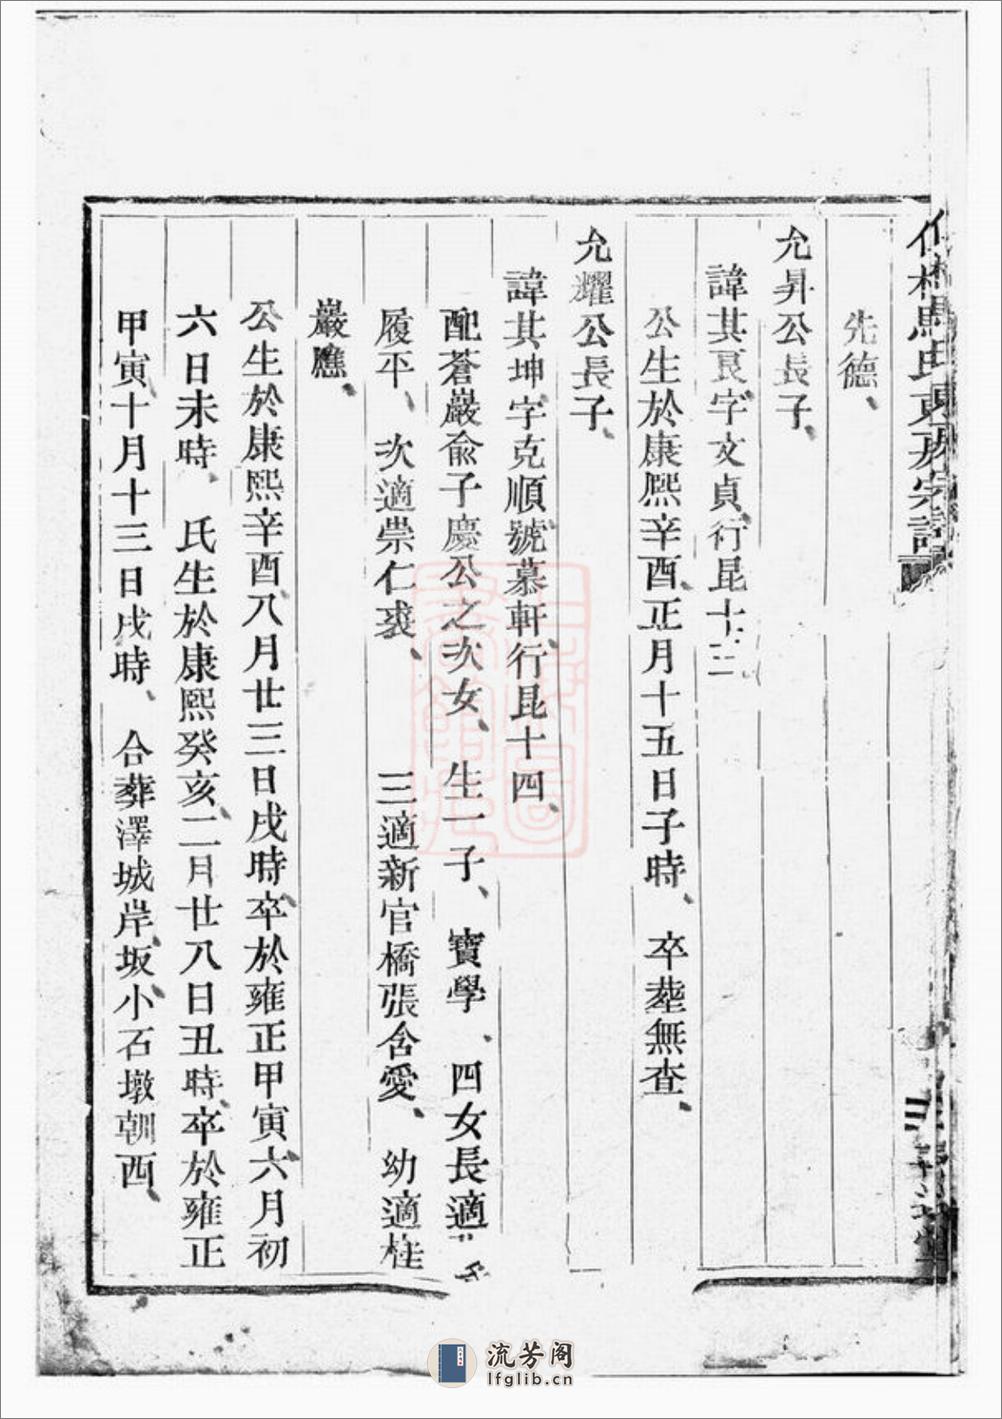 馬氏東房宗譜
先德、
允昇公長子、
諱其艮字文貞行昆十三
公生於康熙辛酉正月十五日子時、卒塟無查、
允耀公長子、
諱其坤字克順號慕軒行昆十四、
配蒼巖俞子慶公之次女、生一子、寶學、四女長適
履平、次適崇仁裘、三適新官橋張含愛、幼適桂
巖譙、
公生於康熙辛酉八月廿三日戌時卒於雍正甲寅六月初
六日未時、氏生於康熙癸亥二月廿八日丑時卒於雍正
甲寅十月十三日戌時、合葬澤城岸坂小石墩朝西、
流芳阁
lfglib.cn